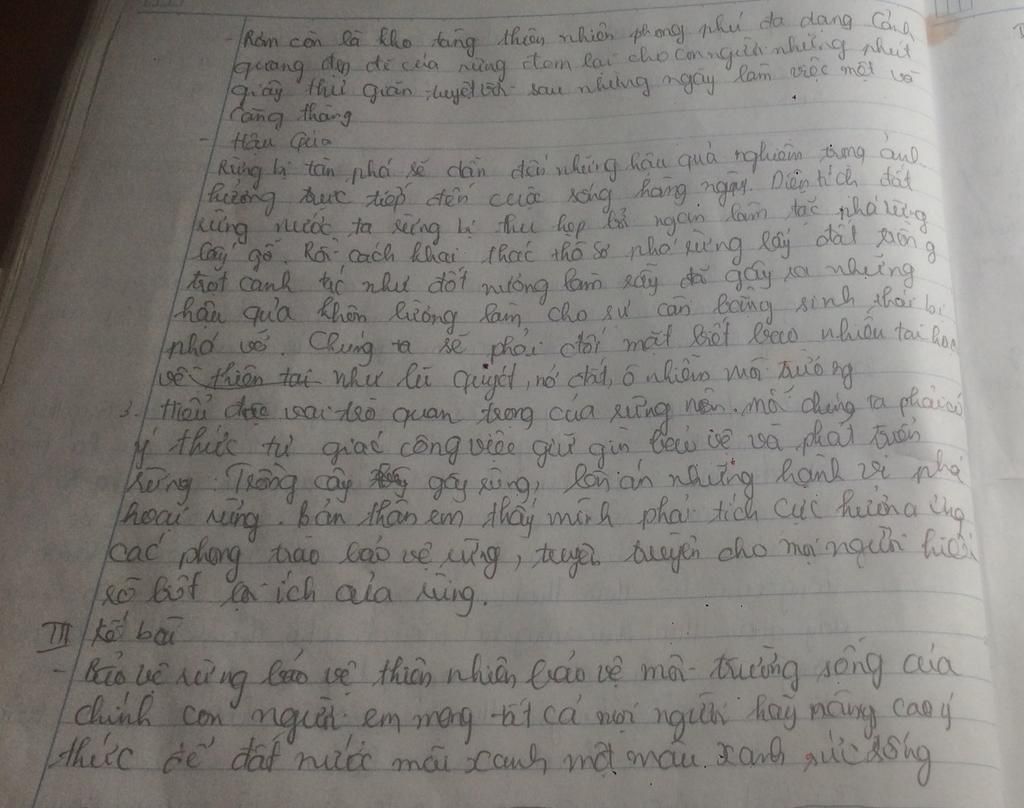 - Rừng còn là kho tàng thiên nhiên phong phú đa dạng Cảnh
quang đẹp đẽ của rừng đem lại cho con người những phút
giây thư giãn tuyệt vời sau những ngày làm việc mệt và
căng thẳng
- Hậu Quả
Rừng bị tàn phá sẽ dẫn đến những hậu quả nghiêm trọng ảnh
hưởng trực tiếp đến cuộc sống hàng ngày. Diện tích đất
rừng nước ta rừng bị thu hẹp bởi ngạn lâm tặc phá rừng
lấy gỗ. Rồi cách khai thác thô sơ phá rừng lấy đất trồng
trọt canh tác như đốt nương làm rẫy đã gây ra những
hậu quả khôn lường làm cho sự cân bằng sinh thái bị
phá vỡ. Chúng ta sẽ phải đối mặt biết bao nhiêu tai họa
về thiên tai như lũ quyét, nở đất, ô nhiễm môi trường
3. Hiểu được vai trò quan trọng của rừng nên mỗi chúng ta phải có
ý thức tự giác công việc giữ gìn bảo vệ và phát triển
rừng. Trồng cây gây rừng, lên án những hành vi phá
hoại rừng. Bản thân em thấy mình phải tích cực hưởng ứng
các phong trào bảo vệ rừng, tuyên truyền cho mọi người hiểu
rõ biết lợi ích của rừng.
III Kết bài
- Bảo vệ rừng bảo vệ thiên nhiên bảo vệ môi trường sống của
chính con người em mong tất cả mọi người hãy nâng cao ý
thức để đất nước mãi xanh một màu xanh sức sống